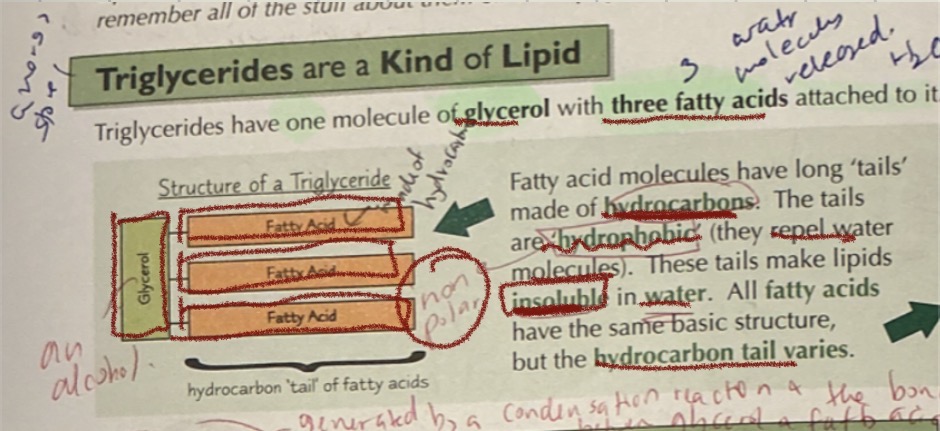 remember all of the stuff about
Triglycerides are a Kind of Lipid
3 water
molecules
released.
Triglycerides have one molecule of glycerol with three fatty acids attached to it
made of
hydrocarbon
Structure of a Triglyceride
Glycerol
Fatty Acid
Fatty Acid
Fatty Acid
non
polar
an
alcohol.
hydrocarbon 'tail' of fatty acids
Fatty acid molecules have long 'tails'
made of hydrocarbons. The tails
are 'hydrophobic' (they repel water
molecules). These tails make lipids
insoluble in water. All fatty acids
have the same basic structure,
but the hydrocarbon tail varies.
generated by a condensation reaction & the